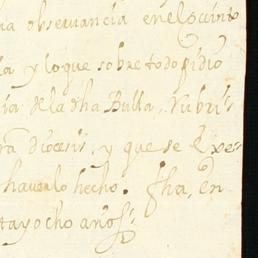 na observancia en el Quinto
ia y lo que sobre todo pidio
ia de la dha Bulla, Rubri
ra Diocesis, y que se
haverlo hecho. fha, en
tay ocho años